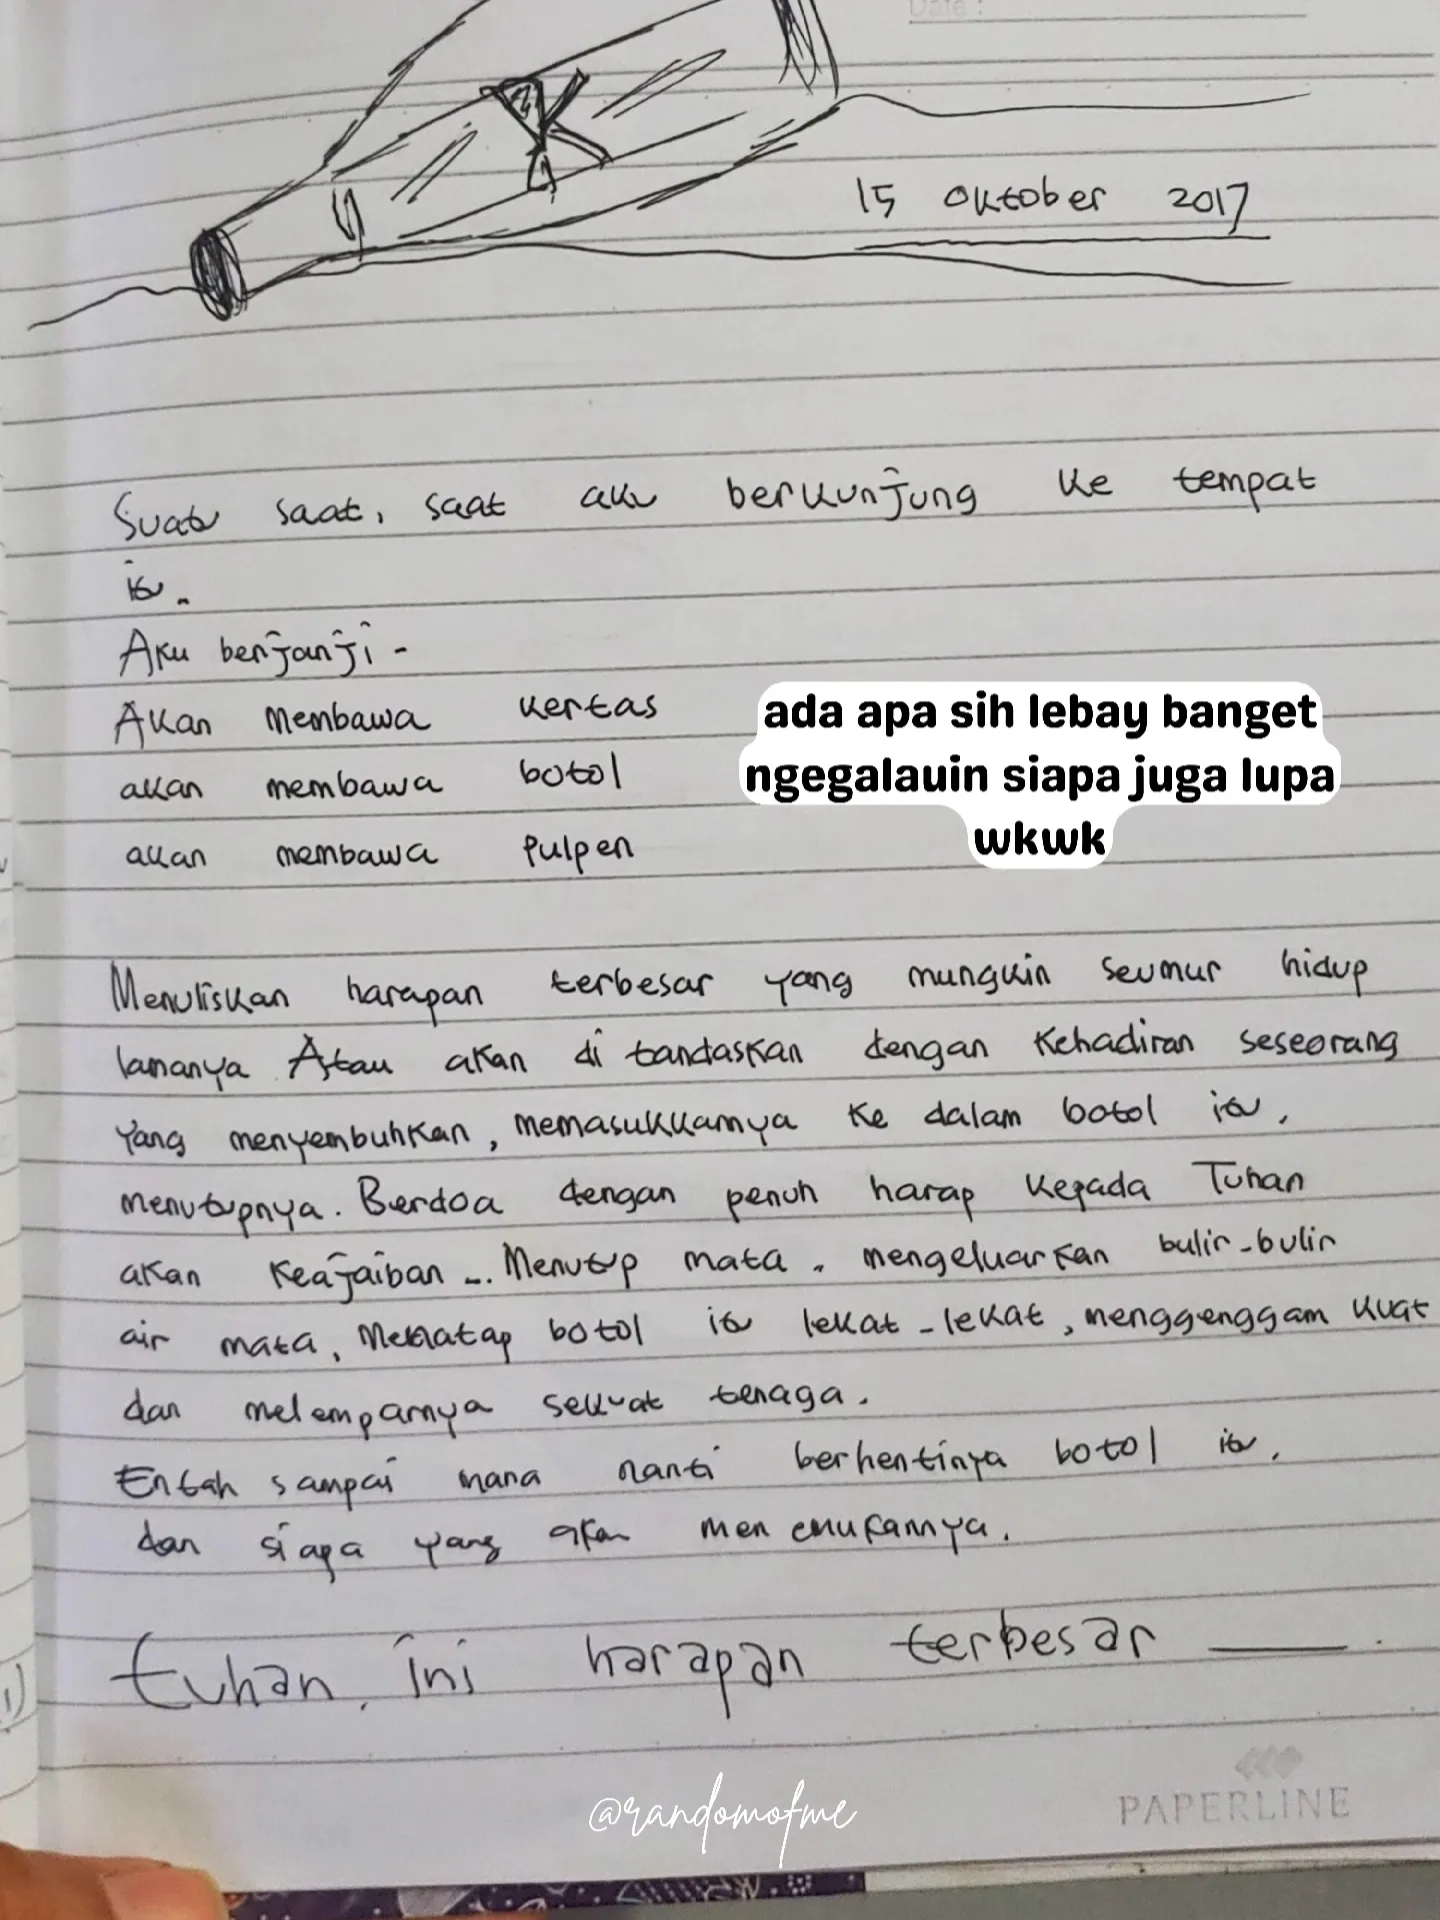 Date :
15 Oktober 2017
Suatu saat, saat aku berkunjung ke tempat
itu.
Aku berjanji -
Akan membawa kertas
akan membawa botol
akan membawa pulpen
ada apa sih lebay banget
ngegalauin siapa juga lupa
wkwk
Menuliskan harapan terbesar yang mungkin seumur hidup
lamanya Atau akan di tandaskan dengan kehadiran seseorang
yang menyembuhkan, memasukkannya ke dalam botol itu,
menutupnya. Berdoa dengan penuh harap kepada Tuhan
akan keajaiban ... Menutup mata, mengeluarkan bulir-bulir
air mata, Menatap botol itu lekat-lekat, menggenggam kuat
dan melemparnya sekuat tenaga.
Entah sampai mana nanti berhentinya botol itu,
dan siapa yang akan menemukannya.
tuhan, ini harapan terbesar ____.
@randomofme
PAPERLINE